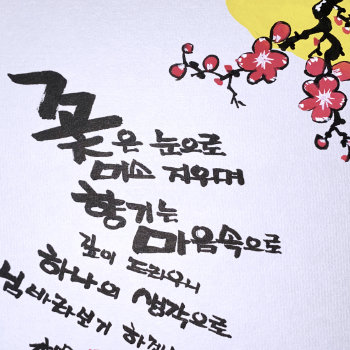 꽃은 눈으로
미소 지우며
향기는
마음속으로
깊이 드리우니
하나의 생각으로
님 바라보기 하